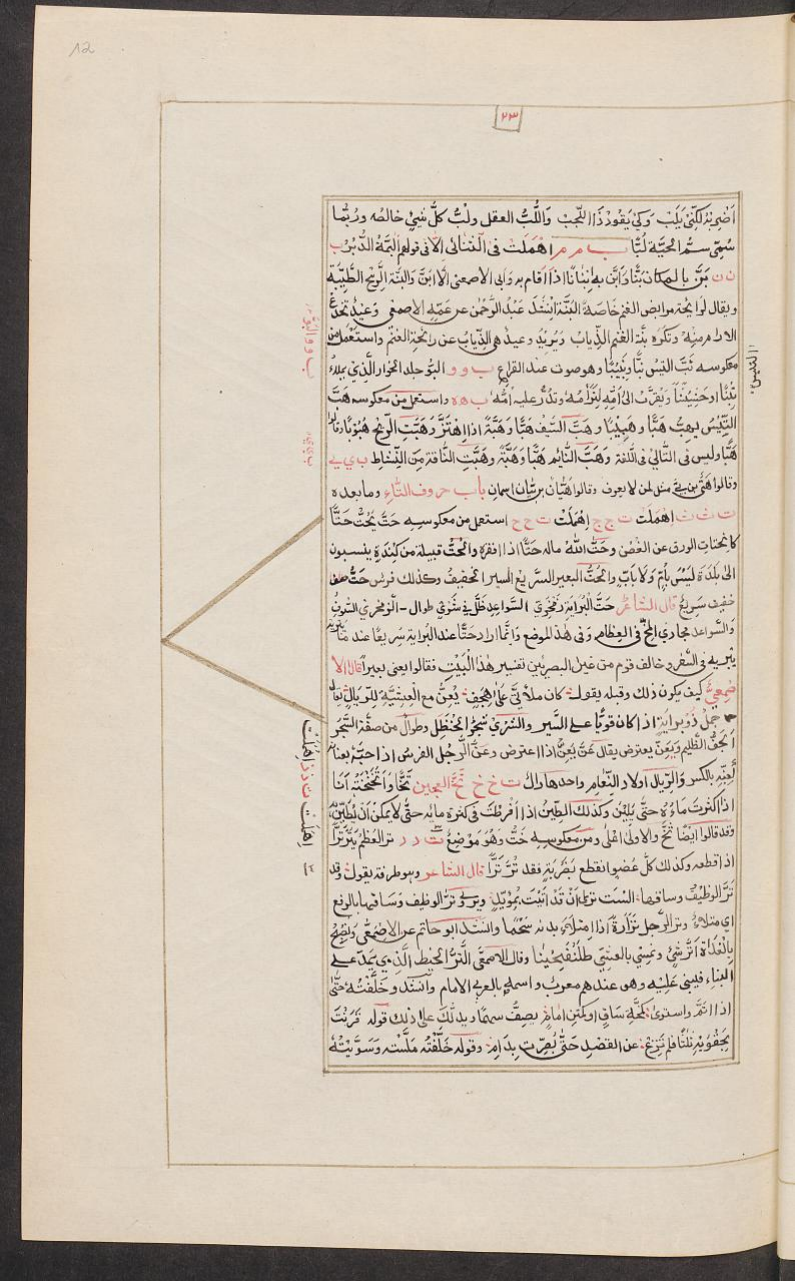 12
٢٣
اَضْرِبُهُ لِكَىْ يَلَبّ وَكَىْ يَقُودَ ذَا اللَّجَبْ وَاللُّبُّ العقل ولُبُّ كلِّ شيءٍ خالصُه ورُبَّمَا
سُمِّىَ سمّ الحيَّة لُبًّا ب م م اهملت فى الثنائى الا فى قولهم البَمَّةُ الدُّبُر ب
ن ن بَنَّ بالمكان بَنًّا وَاَبَنَّ به اِبْنَانًا اذا اقام به وَابى الاصمعى الّا ابَنَّ وَالبَنَّة الرِّيح الطَّيِّبَة
ويقال لرايحة مرابض الغنم خاصة البَنَّة انشد عَبْدُ الرَّحمٰن عن عَمِّهِ الاصمعى وَعِيدٌ تخدج
الارام منه وتكره بنّة الغنم الذِّيابُ وَيُرِيدُ وعيدٌ الذِّيابُ عن رائحة الغنم واستعمل من
معكوسه نَبَّ التيس نبًّا ونَبِيبًا وهو صوت عند القراع ب و و البَوُّ جلد الحوار الَّذِي يملاءُ
تِبْنًا اوحَشِيشًا وَيُقَرَّبُ الى اُمِّهِ لِتَرْأمَهُ وتدُرَّ عليه ب ه ه واستعمل من معكوسه هَبَّ
التَّيْسُ يهبُّ هَبًّا وهَبِيْبًا وهَبَّ السَّيفُ هَبًّا وَهَبَّةً اذا اهْتَزَّ وَهَبَّتِ الرِّيح هُبُوبًا وقالوا
هَبًّا وليس فى العالى فى اللغة وهَبَّ النَّائِم هَبًّا وَهَبَّةً وَهَبَّتِ النَّاقة مِنَ النَّشاط ب ي ي
وقالوا هَىُّ بن بَىٍّ مثل لمن لا يعرف وقالوا هَيَّانُ بن بَيَّان اسمان باب حروف التَّاءِ وما بعده
ت ث ث اهملت ت ج ج اهملت ت ح ح استعمل من معكوسه حَتَّ يَحُتُّ حَتًّا
كانحتات الورق عن الغصن وحَتَّ اللّٰهُ ماله حَتًّا اذا افقره والحُتُّ قبيلة من كِنْدَةَ ينسبون
الى بلدة لَيْسَ بِاُمٍّ وَلَا بابٍ والحُتُّ البعير السَّرِيعُ السير الخفيف وكذلك فرس حَتٌّ
خفيف سريعٌ قال الشاعر حَتِّ البُرَايَةِ زَمْخَرِىِّ السَّواعد ظَلَّ فى شَرْىٍ طوال الزمخرى
وَالسَّواعد مجارى المخّ فى العظام وفى هٰذا الموضع وَانَّما اراد حَتًّا عند البُرَاية سَرِيعًا عند مَا
يبريه فى السَّفر وخالف قوم من غير البصريّين تفسير هٰذا الْبَيْتِ فقالوا يعنى بعيرا قال الا
صمعيُّ كيف يكون ذلك وقبله يقول كان ملأتىَّ عَلٰى هِجَفٍّ يَعِنُّ مع الْعَشِيَّةِ لِلرِّيَالِ
جملٌ ذُو بُرايةٍ اذا كان قويًّا على السَّير والشَّرْى شجر الحنظل وطوالٌ من صفة الشجر
الهِجَفُّ الظَّليم وَيَعِنُّ يعترض يقال عَنَّ يَعِنُّ اذا اعترض وعَنَّ الرَّجُل الفرس اذا حبسه بعنانه
يَعِنُّه بالكسر والرِّيال اولاد النَّعام واحدها رال ت خ خ تَخَّ العجين تَخًّا واَتَخَّهُ اَنَا
اذا اكثرتُ مَاءَهُ حتّى يَلِينَ وكذلك الطِّينُ اذا افرطت فى كثرة مائه حتّى لا يمكن اَنْ يُطَيَّنَ به
وقد قالوا ايضًا ثَخَّ والاولى اعلى ومن معكوسه خَتٌّ وَهُوَ مَوْضِعٌ ت ر ر تر العظمُ يَتُرُّ تَرًّا
اذا قطعه وكذلك كلّ عضو انقطع بضربة فقد تُرَّ تَرًّا قال الشاعر وهو طرفة يقول وقد
تَرَّ الْوَظِيفُ وساقها السْت ترىٰ اَنْ قَدْ اَتَيْتَ بِمُؤْيِدٍ ويروى تَرَّ الوظيف وَسَاقها بالرفع
اى وترَّ الرَّجل ترارةً اذا امتلاء بدنه شحمًا وانشد ابو حاتم عن الاصمعى ونصبح
بِالْغَدَاةِ اَتَرَّ شىءٍ ونمسى بالعشىّ طَلَنْفَحِينَا وقال الاصمعى التُّرُّ الخيط الَّذِى يمدّ على
البناء فيبنى عَلَيْه وهو عندهم معرب واسمه بالعربى الامام وانشد وخَلَّقْتُهُ حَتّٰى
اذا تَمَّ واستوىٰ كَمُخَّةِ سَاقٍ اوكمتن اِمَامِ يصِفُ سهمًا ويدلّك على ذلك قوله قَرَنْتَ
بِحَقْوَيْهِ ثلاثًا فلم تَزِغْ عن القَصْدِ حَتّٰى بُصِّرَت بِدِمَامِ وقوله خَلَّقْتُه مَلَّسْتُه وَسَوَّيْتُهُ
التيس
ب و و البَوّ
ب ي ي
اهملت ت ذ ذ اهملت